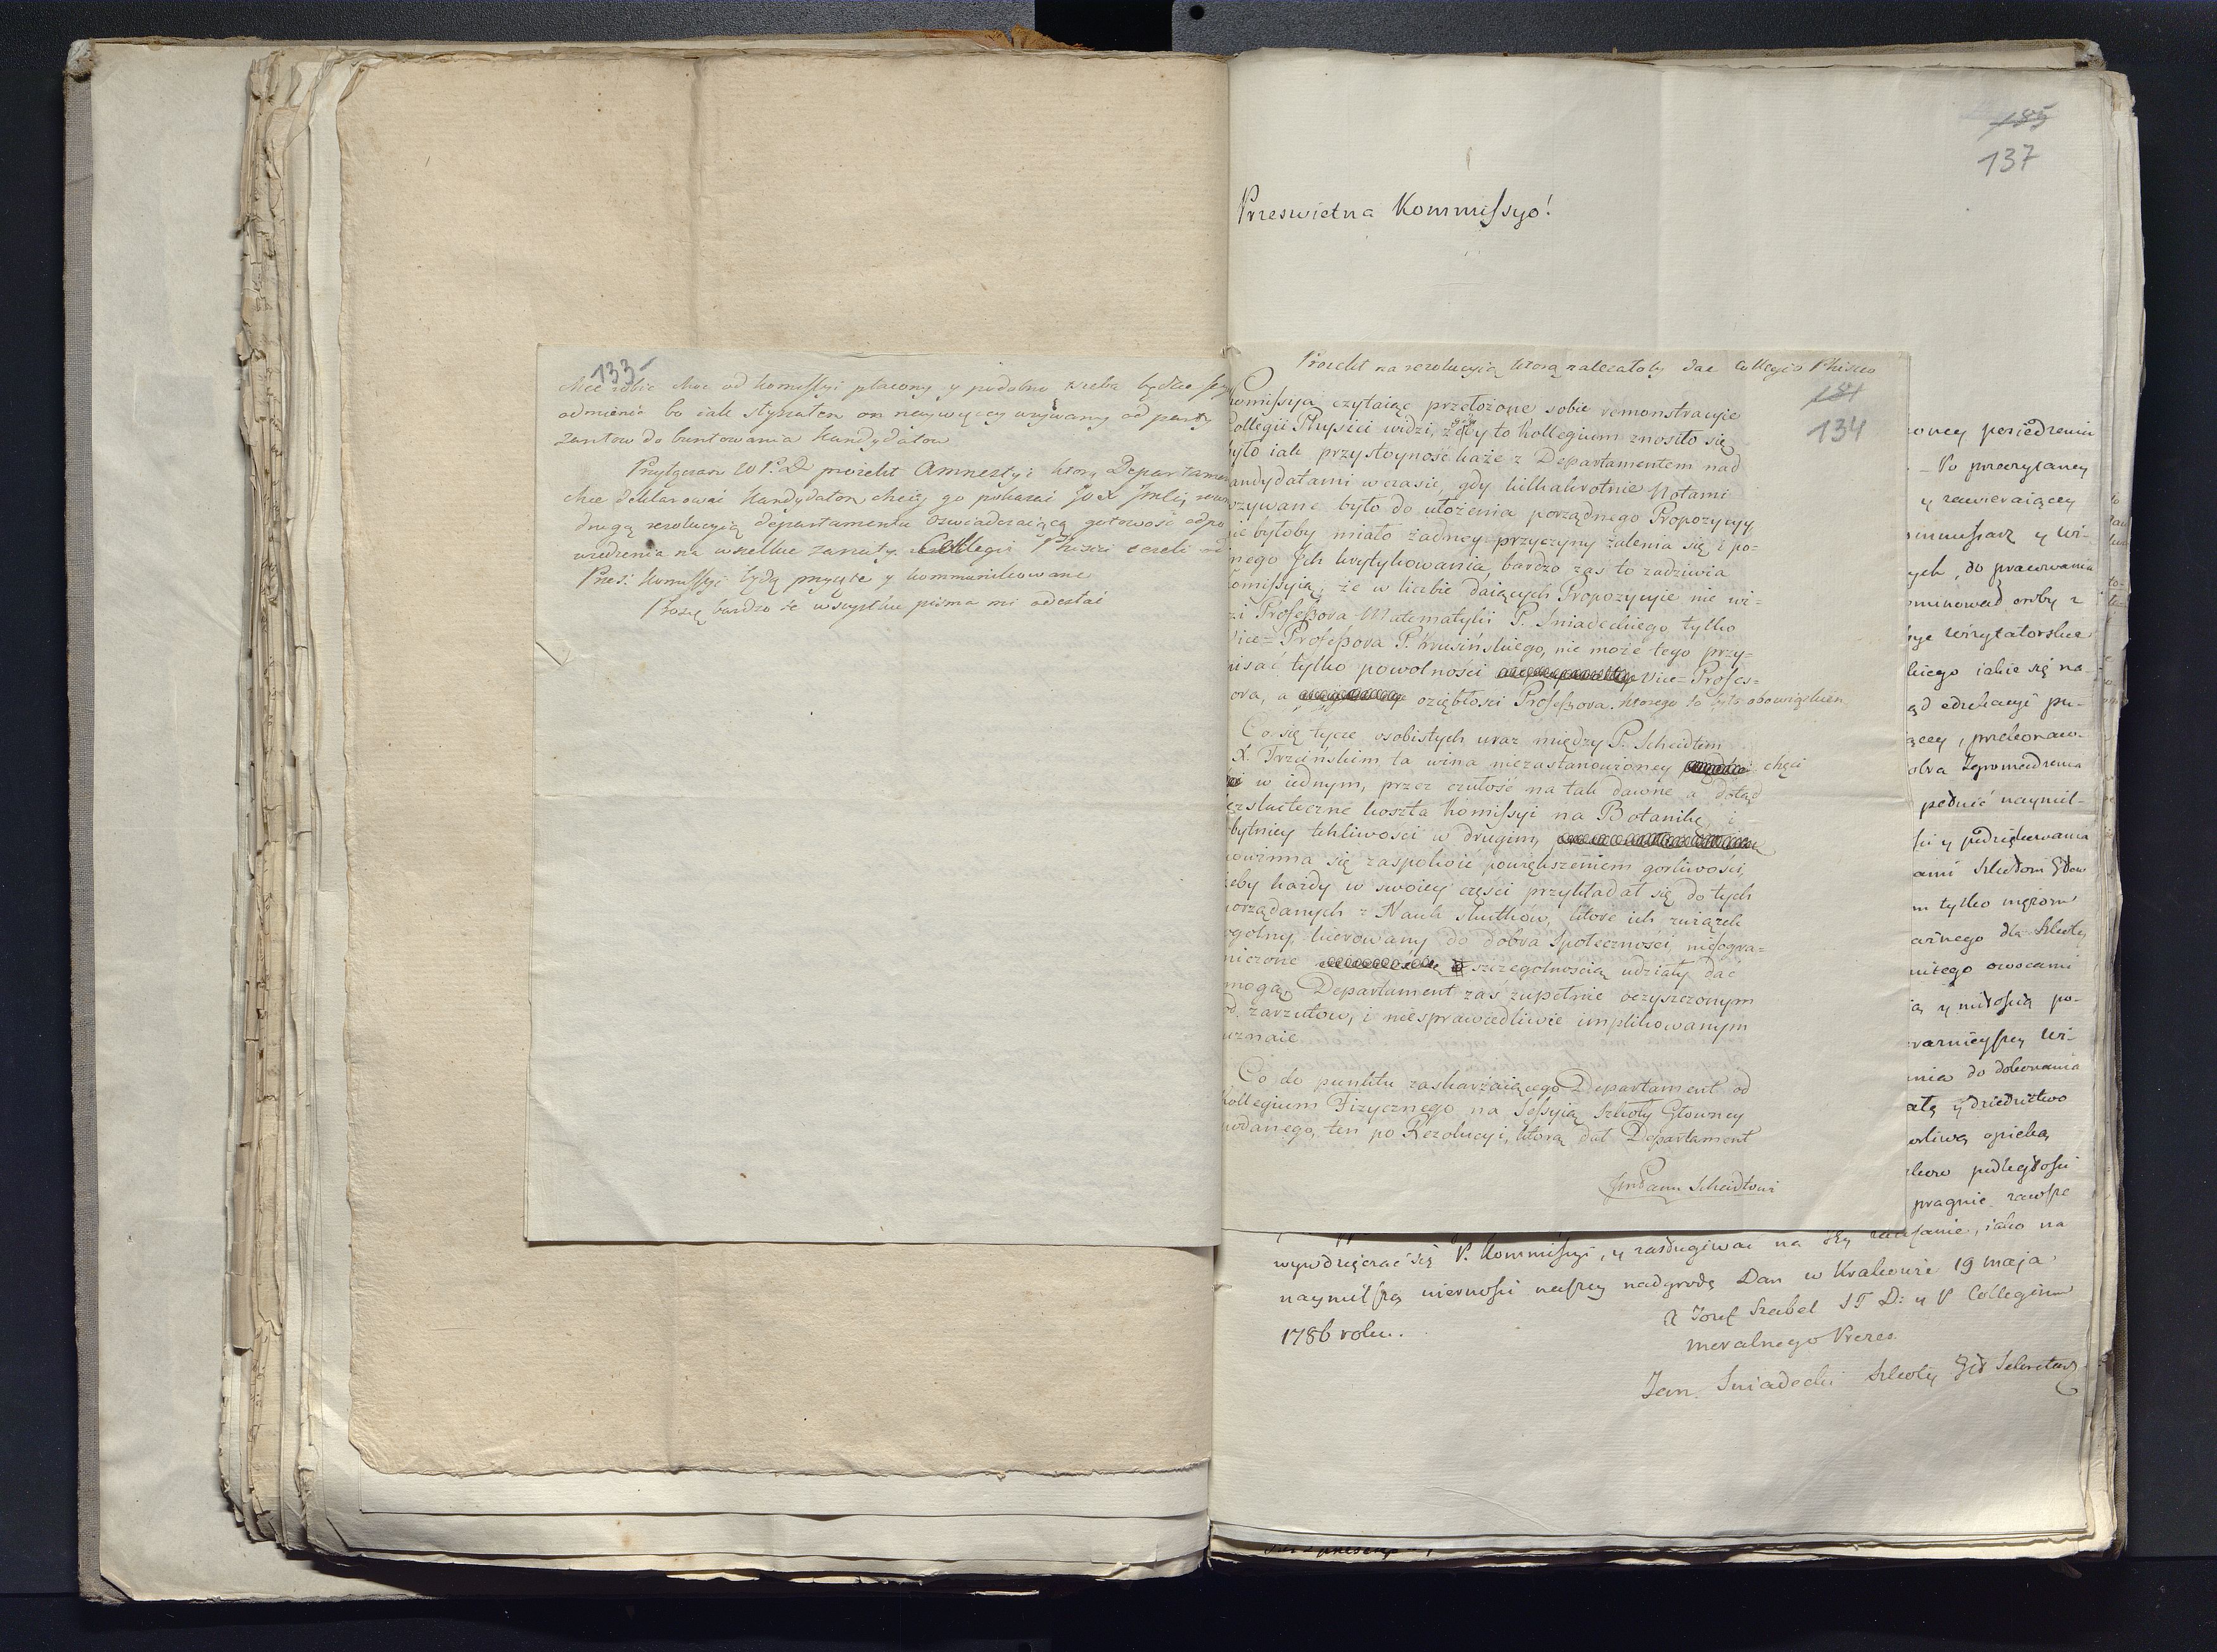 133
chce robić choc od komissyi płacony y podobno trzeba będzie
odmienić bo iak styszałem on naywięcey używany od party
zantow do buntowania kandydatow
Przyłączam WPD proiekt Amnestyi ktorą Departamen
chce deklarować kandydatom chciey go pokazać
drugą rezolucyią departamentu oswiadczaiącą gotowość odpo
wiedzenia na wszelkie zarzuty Collegii Phisici ieżeli od
Pres: Komissyi będą przyięte y kommunikowane
Proszę bardzo że wszystkie pisma mi odesłać
185
137
Przeswietna Kommissyo!
Proiekt na rezolucyią ktorą należałoby dać Collegio Phisico
134
omissya czytaiąc przełożone sobie remonstracyie
ollegii Physici widzi, gdyby to Kollegium znosiło się
yło iak przystoyność każe z Departamentem nad
andydatami wczasie, gdy kilkakrotnie Notami
zywane było do ułożenia porządnego Propozycyy
ie byłoby miało żadney przyczyny żalenia się i po-
nego Ich krytykowania, bardzo zas to zadziwia
omissyią, że w liczbie daiących Propozycyie nie wi-
zi Professora Matematyki P. Sniadeckiego tylko
Vice-Professora P. Krusińskiego, nie może tego przy-
isać tylko powolności Vice-Profes-
ora, a oziębłości Professora. ktorego to było obowiązkiem
Co się tycze osobistych uraz między P. Scheidtem
X. Trzcińskim ta wina niezastanowioney chęci
w iednym, przez czułość na tak dawne a dotąd
ezskuteczne koszta Komissyi na Botanikę i
bytniey tkliwości w drugim,
owinna się zaspokoić powiększeniem gorliwości,
eby każdy w swoiey części przykładał się do tych
orządanych z Nauk skutków, ktore ich związek
ogolny, kierowany do dobra Społeczności, nieogra-
niczone szczegolnoscią udziały dać
mogą, Departament zaś zupełnie oczyszczonym
od zarzutow, i niesprawiedliwie implikowanym
uznaie
Co do punktu zaskarżaiącego Departament od
Kollegium Fizycznego na Sessyią Szkoły Głowney
odanego, ten po Rezolucyi, ktorą dał Departament
JmPanu Scheidtowi
oney posiedzeniu
– Po przeczytaney
y zawieraiącey
ommissarz y Wi-
ych, do pracowania
ominował osoby z
ye wizytatorskie
kiego iakie się na-
ąd edukacyi pu-
ącey, przekonaw-
olva Zgromadzenia
pełnić naymil-
ści y podziękowania
ami Szkołom Głow
m tylko mężom
arnego dla Szkoły
nitego owocami
ią y miłością po-
warnieyszey Wi-
nia do dokonania
atą y dziedzictwo
orliwą opieką
pragnie zawsze
wywdzięczać się P. Kommissyi, y zasługiwać na iako na
naymilszą wierności naszey nadgrodę Dan w Krakowie 19 maja
1786 roku.
X Jozef Szabel ST D: y P Collegium
moralnego Prezes
Jan Sniadecki Szkoły Gł Sekretarz